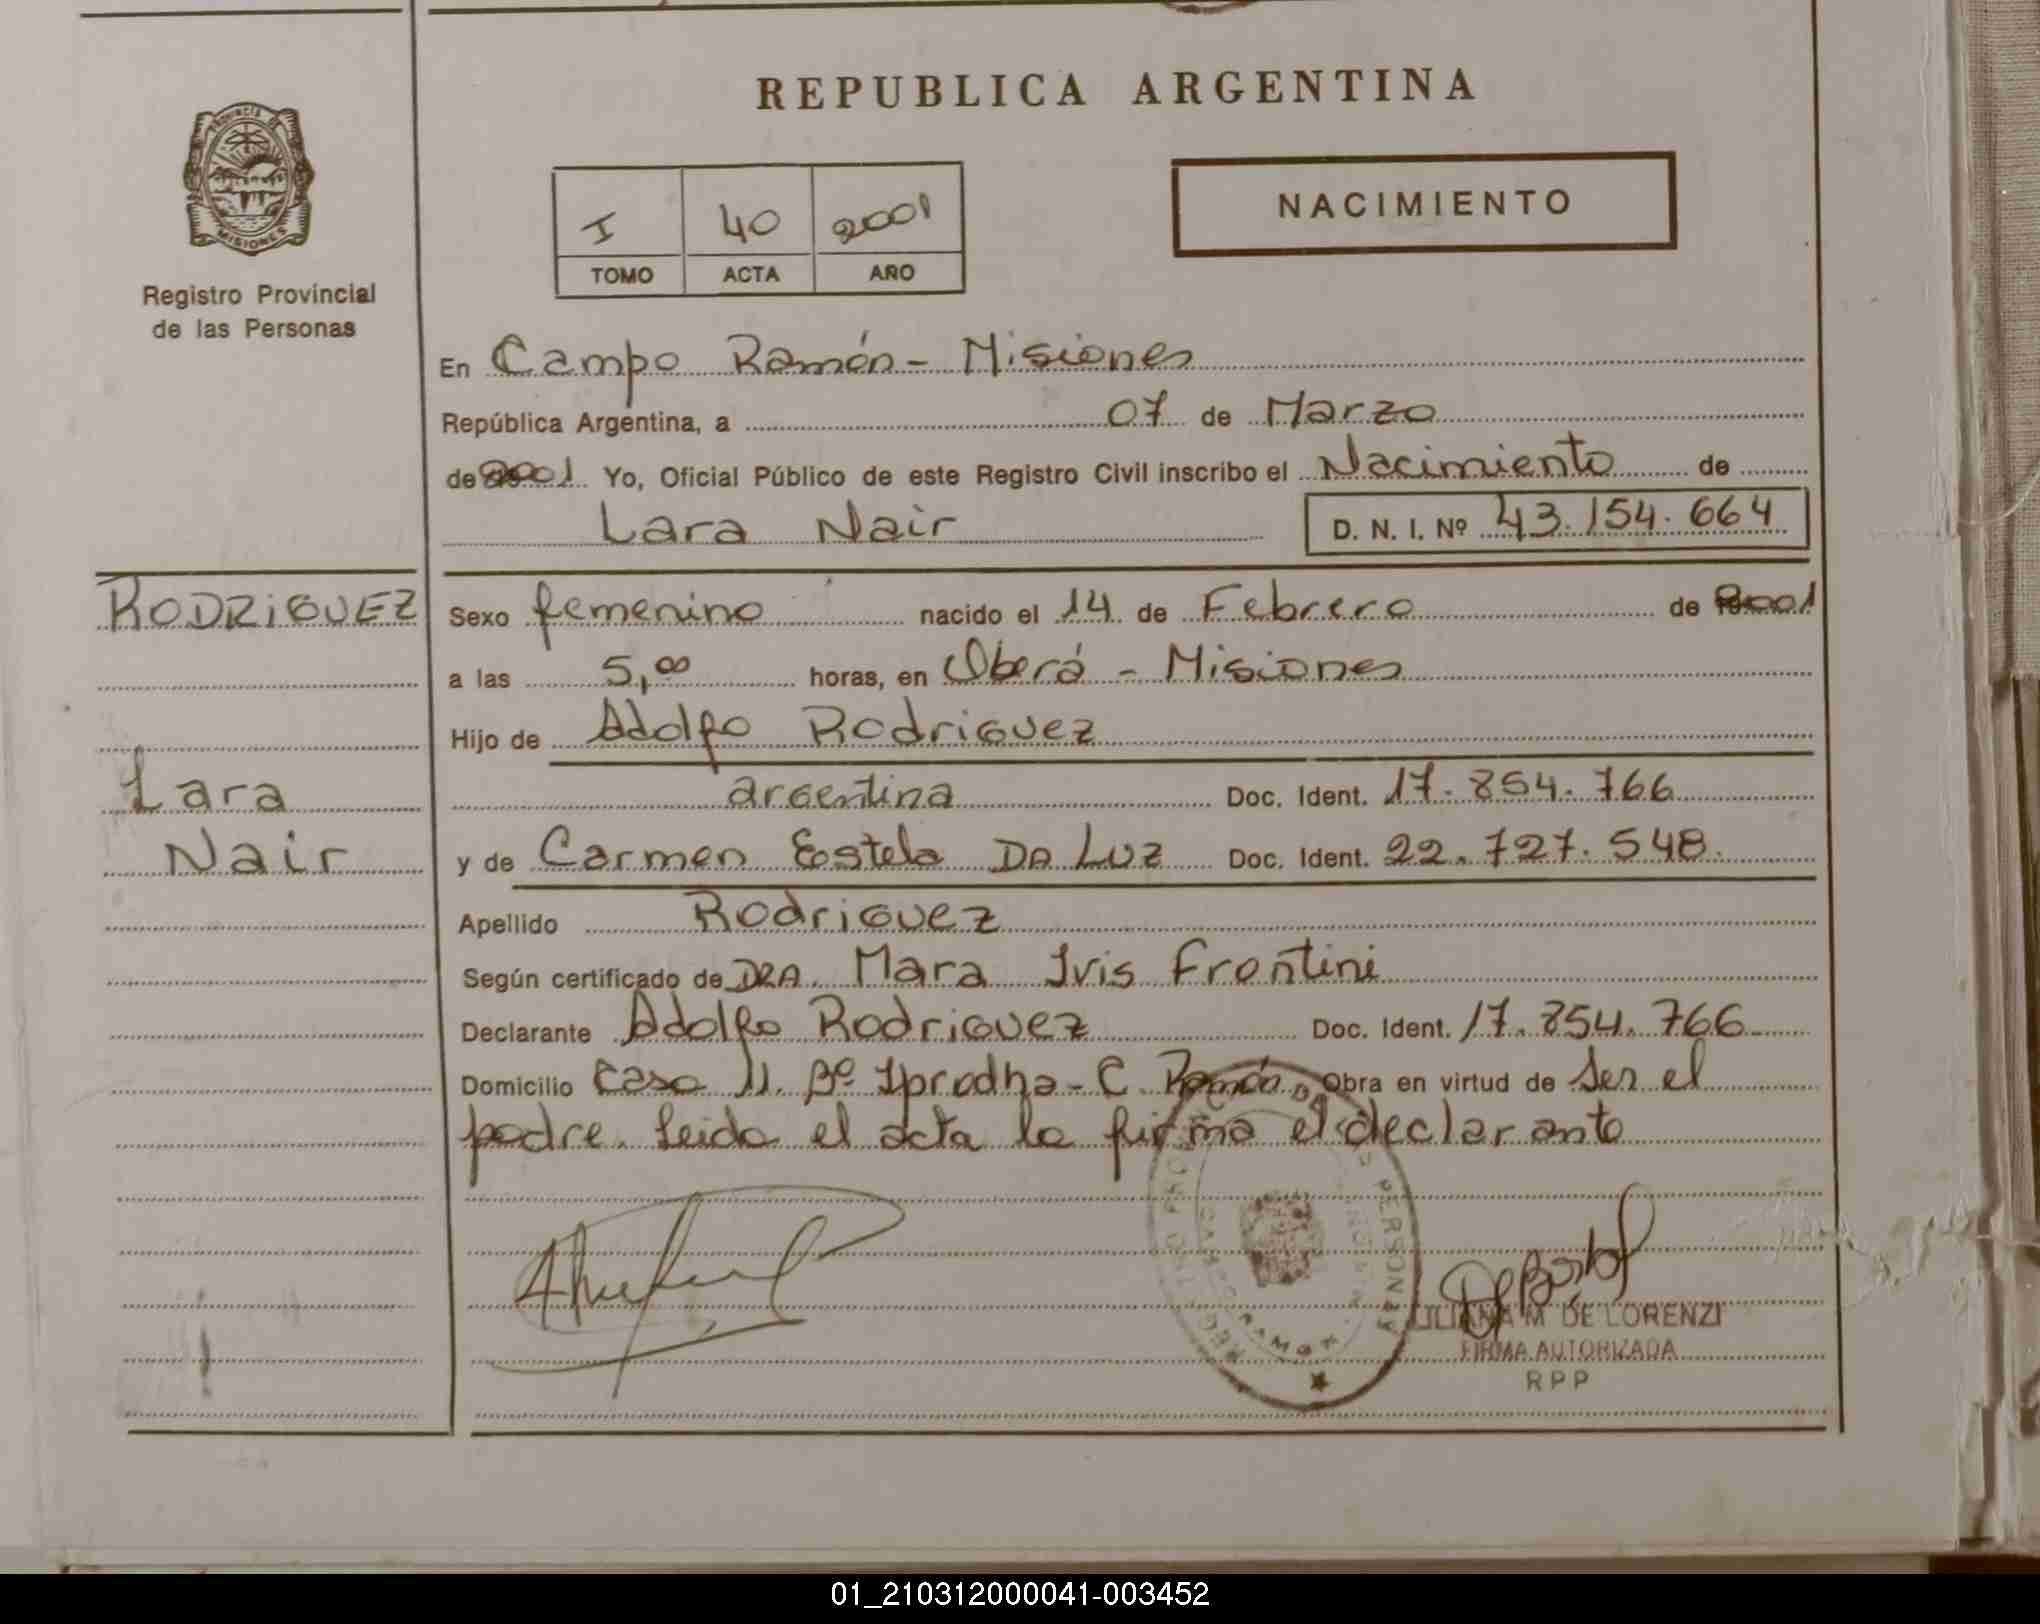 REPUBLICA ARGENTINA
PROVINCIA DE
MISIONES
Registro Provincial
de las Personas
I 40 2001
TOMO ACTA AÑO
NACIMIENTO
En Campo Ramón - Misiones
República Argentina, a 07 de Marzo
de 2001 Yo, Oficial Público de este Registro Civil inscribo el Nacimiento de
Lara Nair D. N. I. Nº 43.154.664
RODRIGUEZ
Lara
Nair
Sexo femenino nacido el 14 de Febrero de 2001
a las 5,00 horas, en Oberá - Misiones
Hijo de Adolfo Rodriguez
argentina Doc. Ident. 17.854.766
y de Carmen Estela DA LUZ Doc. Ident. 22.727.548.
Apellido Rodriguez
Según certificado de DRA. Mara Ivis Frontini
Declarante Adolfo Rodriguez Doc. Ident. 17.854.766
Domicilio Casa 11. Bº Iprodha - C. Ramón Obra en virtud de Ser el
padre. Leida el acta la firma el declarante
LILIANA M DE LORENZI
FIRMA AUTORIZADA
RPP
01_210312000041-003452